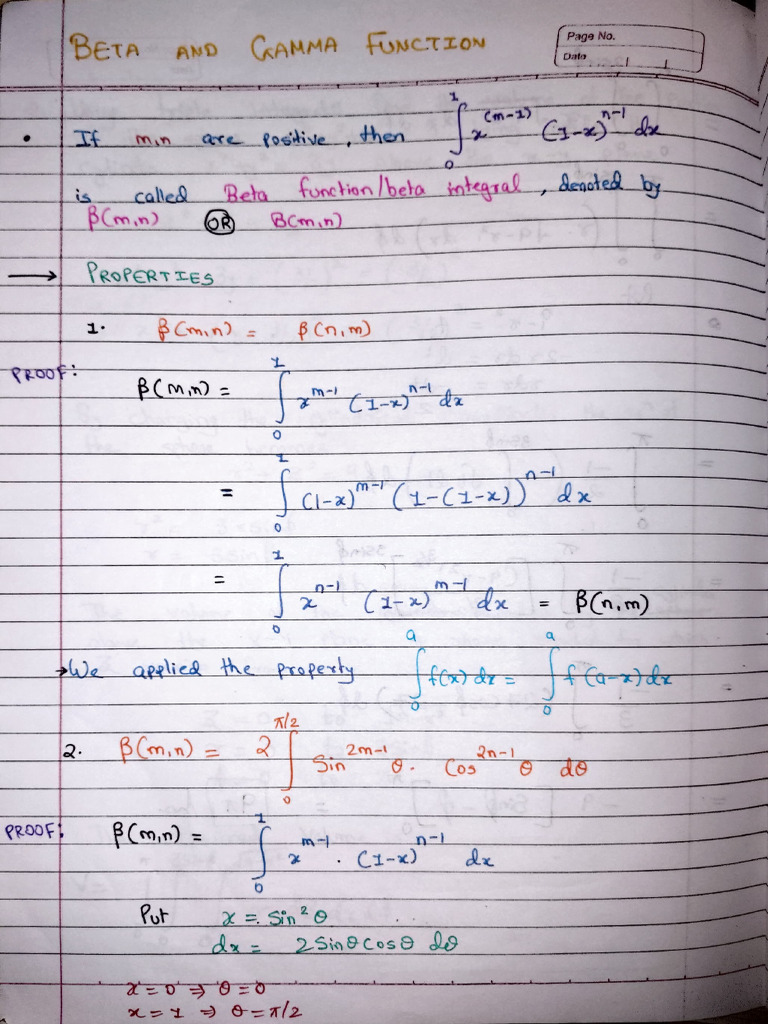 BETA AND GAMMA FUNCTION
Page No.
Date
• If m,n are positive, then ∫₀¹ x^(m-1) (1-x)^(n-1) dx
is called Beta function/beta integral, denoted by
β(m,n) OR B(m,n)
→ PROPERTIES
1. β(m,n) = β(n,m)
PROOF: β(m,n) = ∫₀¹ x^(m-1) (1-x)^(n-1) dx
= ∫₀¹ (1-x)^(m-1) (1-(1-x))^(n-1) dx
= ∫₀¹ x^(n-1) (1-x)^(m-1) dx = β(n,m)
→ We applied the property ∫₀ᵃ f(x) dx = ∫₀ᵃ f(a-x) dx
2. β(m,n) = 2 ∫₀^(π/2) Sin^(2m-1) θ. Cos^(2n-1) θ dθ
PROOF: β(m,n) = ∫₀¹ x^(m-1) . (1-x)^(n-1) dx
Put x = Sin² θ
dx = 2 Sinθ Cosθ dθ
x = 0 ⇒ θ = 0
x = 1 ⇒ θ = π/2